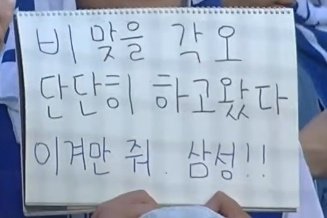 비 맞을 각오
단단히 하고왔다
이겨만 줘. 삼성!!